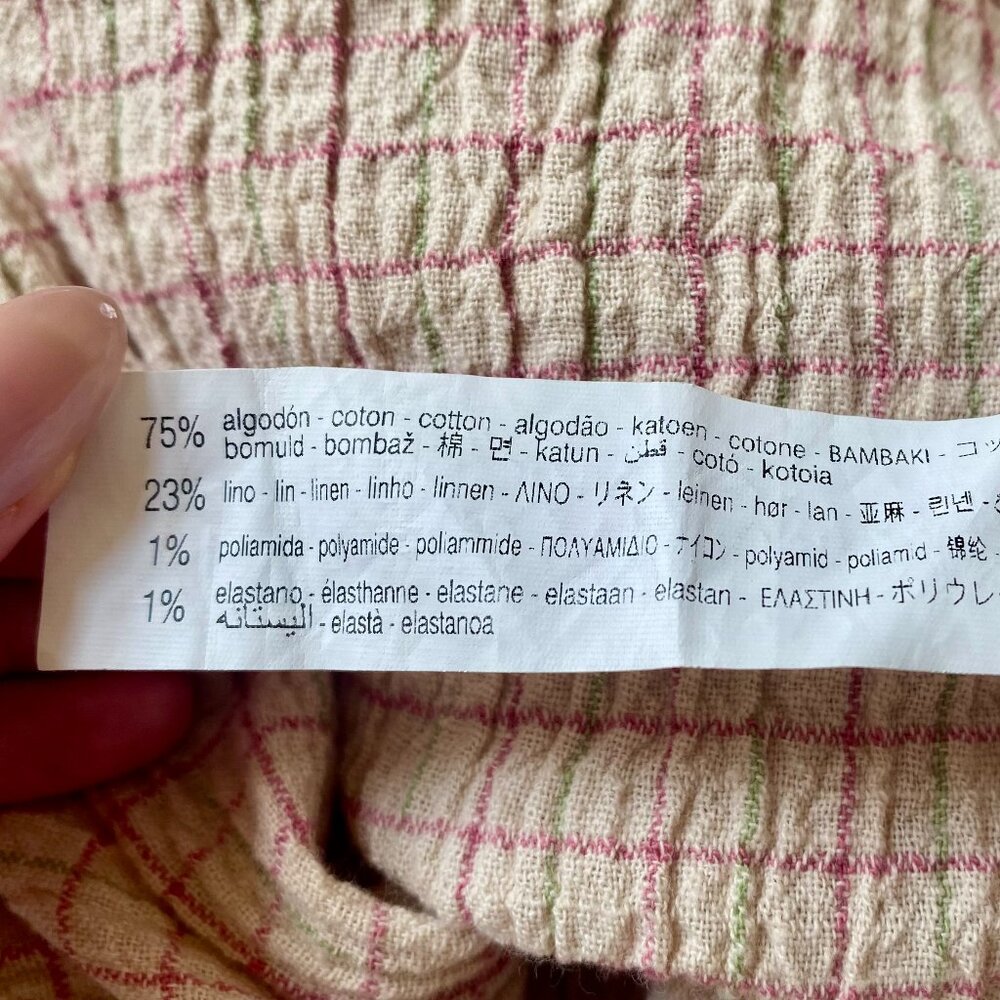 75% algodón - coton - cotton - algodão - katoen - cotone - BAMBAKI - コッ
bomuld - bombaž - 棉 - 면 - katun - قطن - cotó - kotoia
23% lino - lin - linen - linho - linnen - ΛΙΝΟ - リネン - leinen - hør - lan - 亚麻 - 린넨 -
1% poliamida - polyamide - poliammide - ΠΟΛΥΑΜΙΔΙΟ - ナイロン - polyamid - poliamid - 锦纶 -
1% elastano - élasthanne - elastane - elastaan - elastan - ΕΛΑΣΤΙΝΗ - ポリウレ
اليستانه - elastà - elastanoa